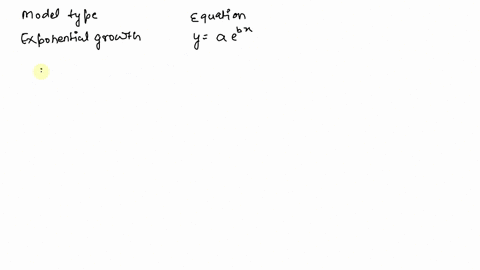 Model type Equation
Exponential growth y = a e^{bx}